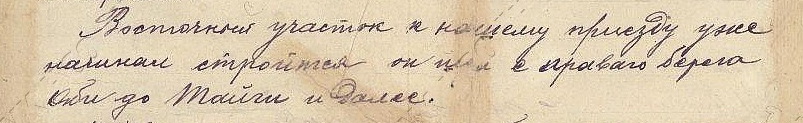 Восточный участок к нашему приезду уже
начинал строится он шел с праваго берега
Оби до Тайги и далее.